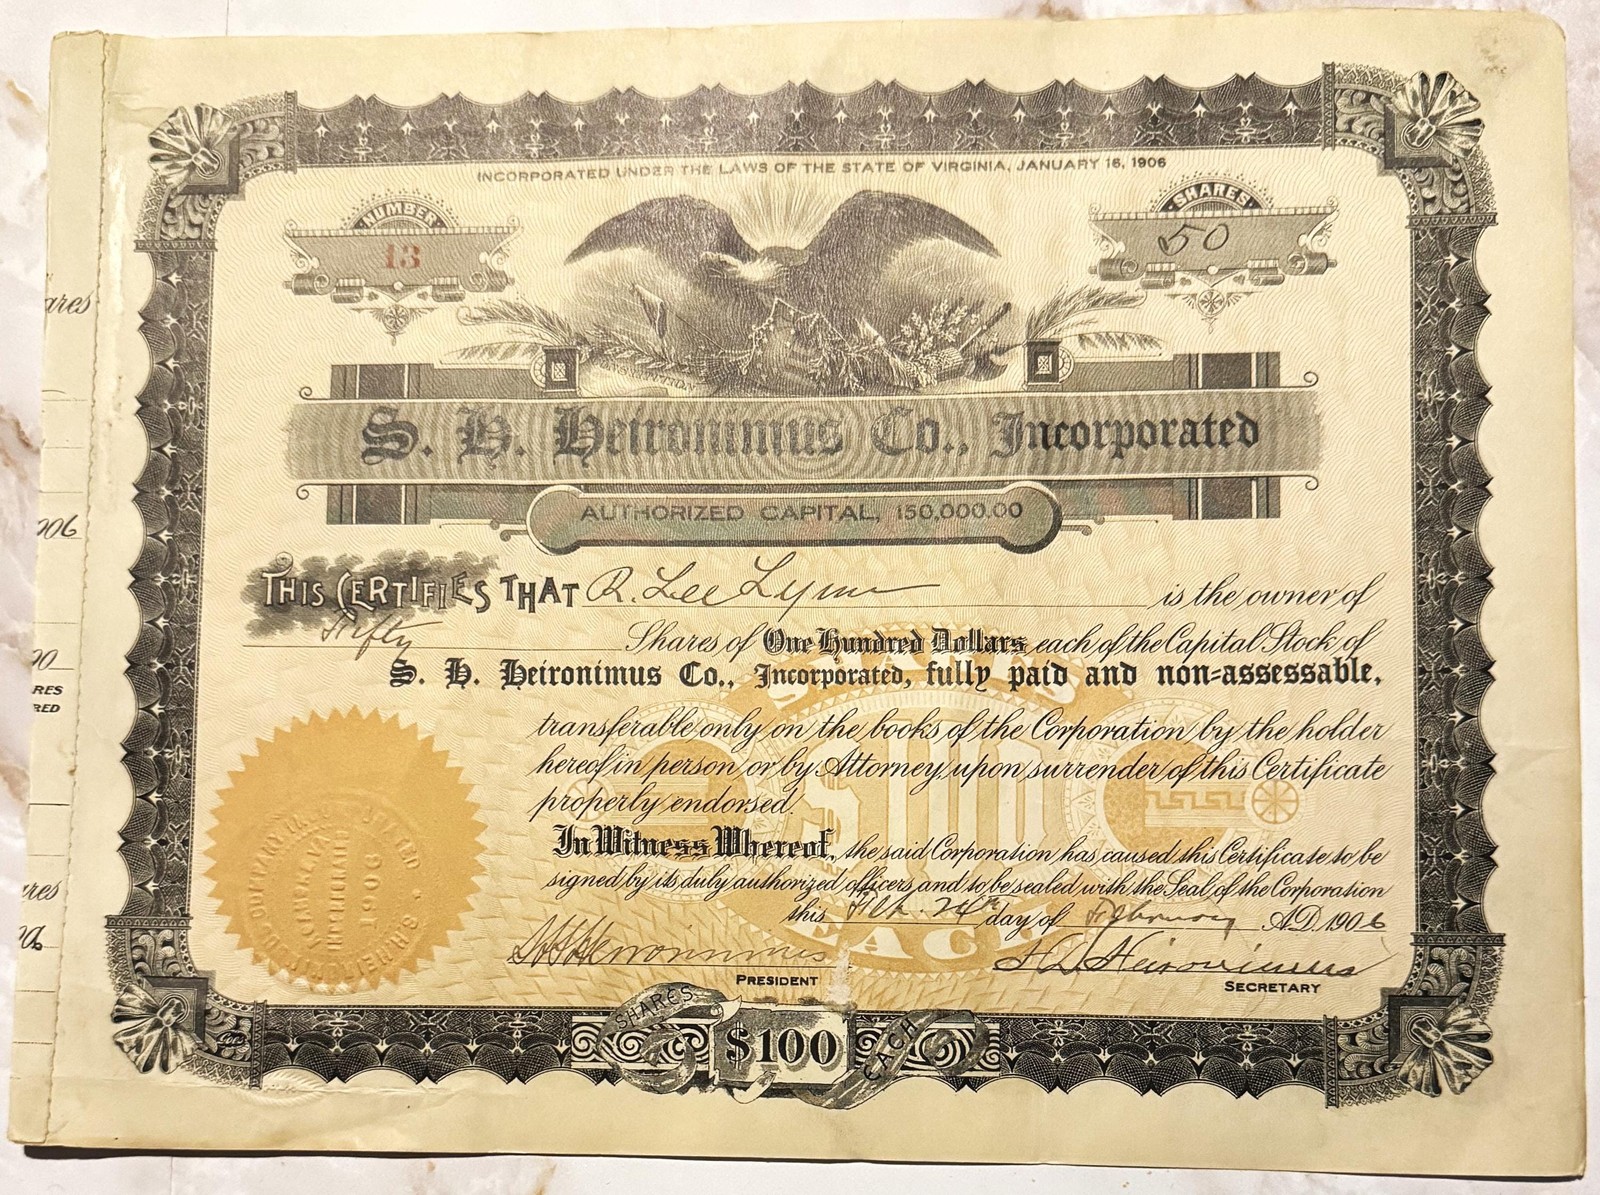 INCORPORATED UNDER THE LAWS OF THE STATE OF VIRGINIA, JANUARY 16, 1906
NUMBER
13
SHARES
50
S. H. Heironimus Co., Incorporated
AUTHORIZED CAPITAL, 150,000.00
THIS CERTIFIES THAT R. Lee Lynn is the owner of
Fifty Shares of One Hundred Dollars each of the Capital Stock of
S. H. Heironimus Co., Incorporated, fully paid and non-assessable,
transferable only on the books of the Corporation by the holder
hereof in person or by Attorney, upon surrender of this Certificate
properly endorsed.
In Witness Whereof, the said Corporation has caused this Certificate to be
signed by its duly authorized officers and to be sealed with the Seal of the Corporation
this Feb. 24th day of February A.D. 1906
S H Heironimus
PRESIDENT
H D Heironimus
SECRETARY
SHARES
$100
EACH
SHARES
$100
EACH
1906
ares
906
00
RES
RED
ares